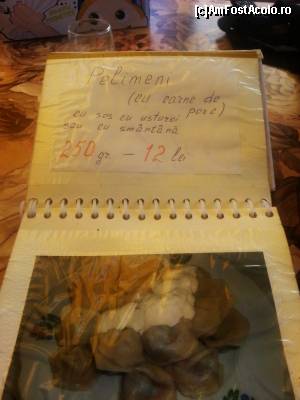 (c)AmFostAcolo.ro
Pelimeni
(cu carne de
porc)
cu sos cu usturoi
sau cu smântână
250 gr. - 12 lei